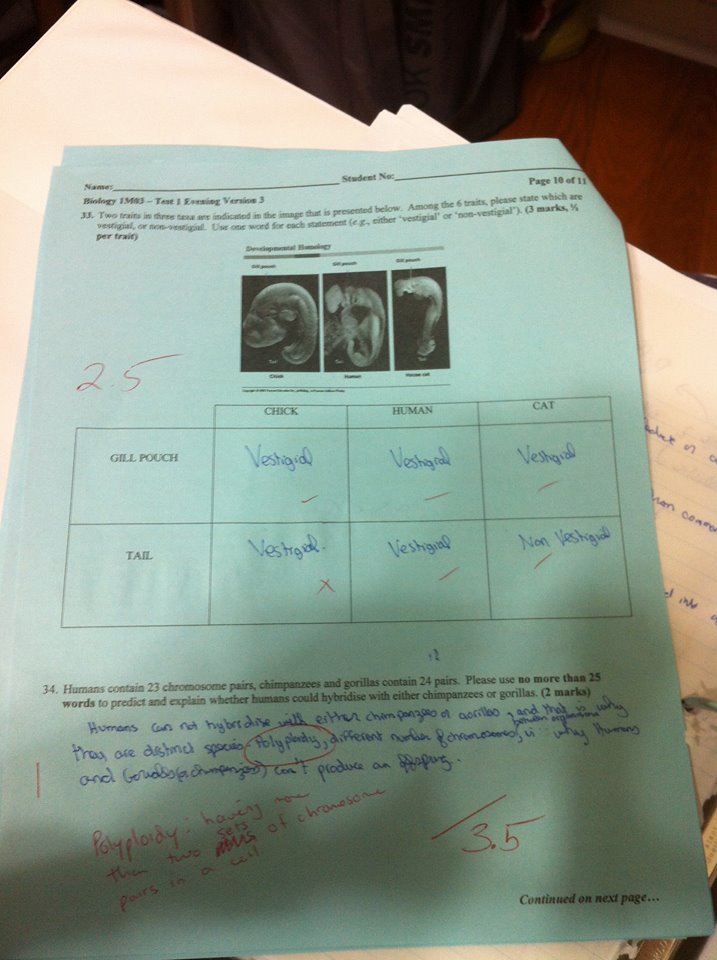 OK SMA
Name: Student No:
Page 10 of 11
Biology 1M03 – Test 1 Evening Version 3
33. Two traits in three taxa are indicated in the image that is presented below. Among the 6 traits, please state which are
vestigial, or non-vestigial. Use one word for each statement (e.g., either 'vestigial' or 'non-vestigial'). (3 marks, ½
per trait)
Developmental Homology
Gill pouch Gill pouch Gill pouch
Tail Tail Tail
Chick Human House cat
2.5
CHICK HUMAN CAT
GILL POUCH Vestigial Vestigial Vestigial
TAIL Vestigial. Vestigial Non Vestigial
34. Humans contain 23 chromosome pairs, chimpanzees and gorillas contain 24 pairs. Please use no more than 25
words to predict and explain whether humans could hybridise with either chimpanzees or gorillas. (2 marks)
Humans can not hybridise with either chimpanzees or gorillas, and that is why
between organisms
they are distinct species. Polyploidy, different number of chromosomes, is why Humans
and Gorillas (or chimpanzees) can't produce an offspring.
Polyploidy: having more
than two sets of chromosome
pairs in a cell
3.5
Continued on next page...